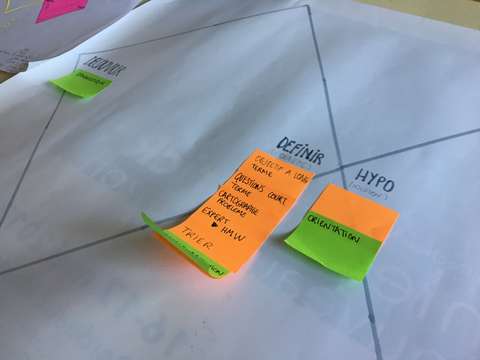 DEFINIR
HYPO
OBJECTIF A LONG
TERME
QUESTIONS COURT
TERME
CARTOGRAPHIE
PROBLEME
EXPERT
HMW
TRIER
ORIENTATION